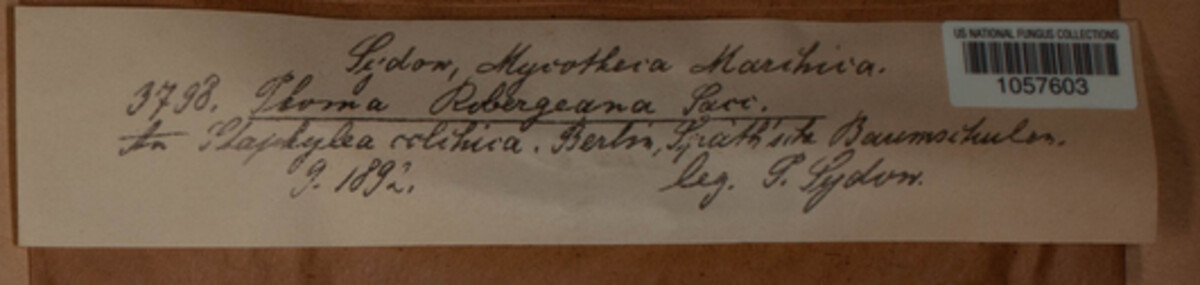 Sydow, Mycotheca Marchica.
3798. Phoma Robergeana Sacc.
An Staphylea colchica. Berlin, Späth'sche Baumschulen.
9. 1892. leg. P. Sydow.
US NATIONAL FUNGUS COLLECTIONS
1057603